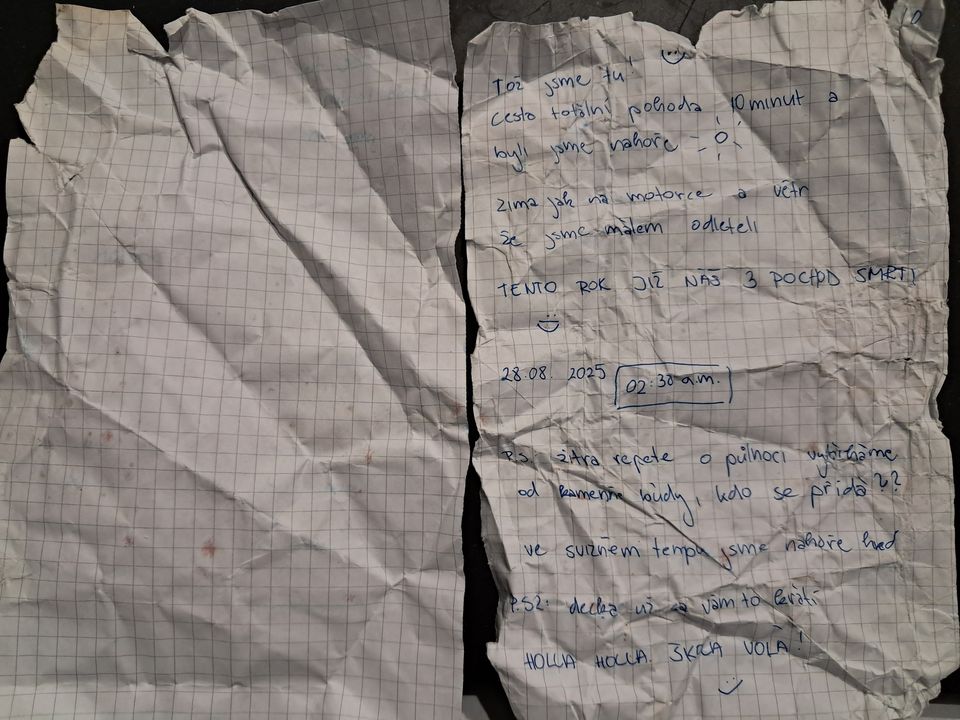 Tož jsme tu!
cesta totální pohoda 10 minut a
byli jsme nahoře
zima jak na motorce a větr
že jsme málem odleteli
TENTO ROK JIŽ NÁŠ 3 POCHOD SMRTI
28.08. 2025 02:30 a.m.
P.S.: zítra repete o půlnoci vybíháme
od kamenné búdy, kdo se přidá??
ve svižném tempu jsme nahoře hned
P.S2: decka už sa vám to krátí
HOLLA HOLLA SKALA VOLÁ!